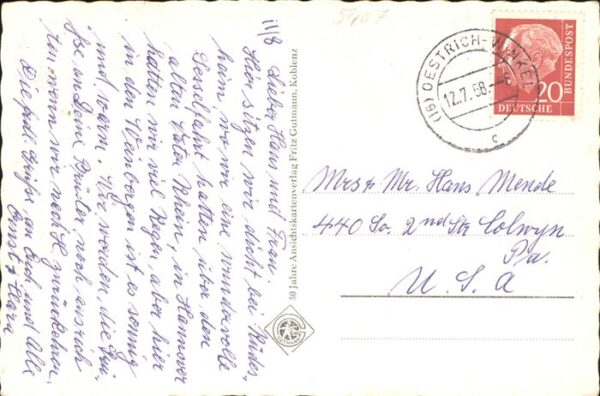 5407
11/8 Lieber Hans und Frau.
Hier sitzen wir dicht bei Rüdes,
heim wo wir eine wundervolle
Sesselfahrt hatten über den
alten Vater Rhein, in Hannover
hatten wir viel Regen, aber hier
in den Weinbergen ist es sonnig
und warm. Wir werden die Grü-
ße an Deine Brüder noch ausrich
ten wenn wir nach H. zurückkehren.
Die herzl. Grüße an Euch und Alle
Clara
50 Jahre Ansichtskartenverlag Fritz Gutmann, Koblenz
(16) OESTRICH-WINKEL
12.7.58.
c
20
DEUTSCHE
BUNDESPOST
Mrs & Mr. Hans Mende
440 So. 2nd Str Colwyn
Pa.
U. S. A